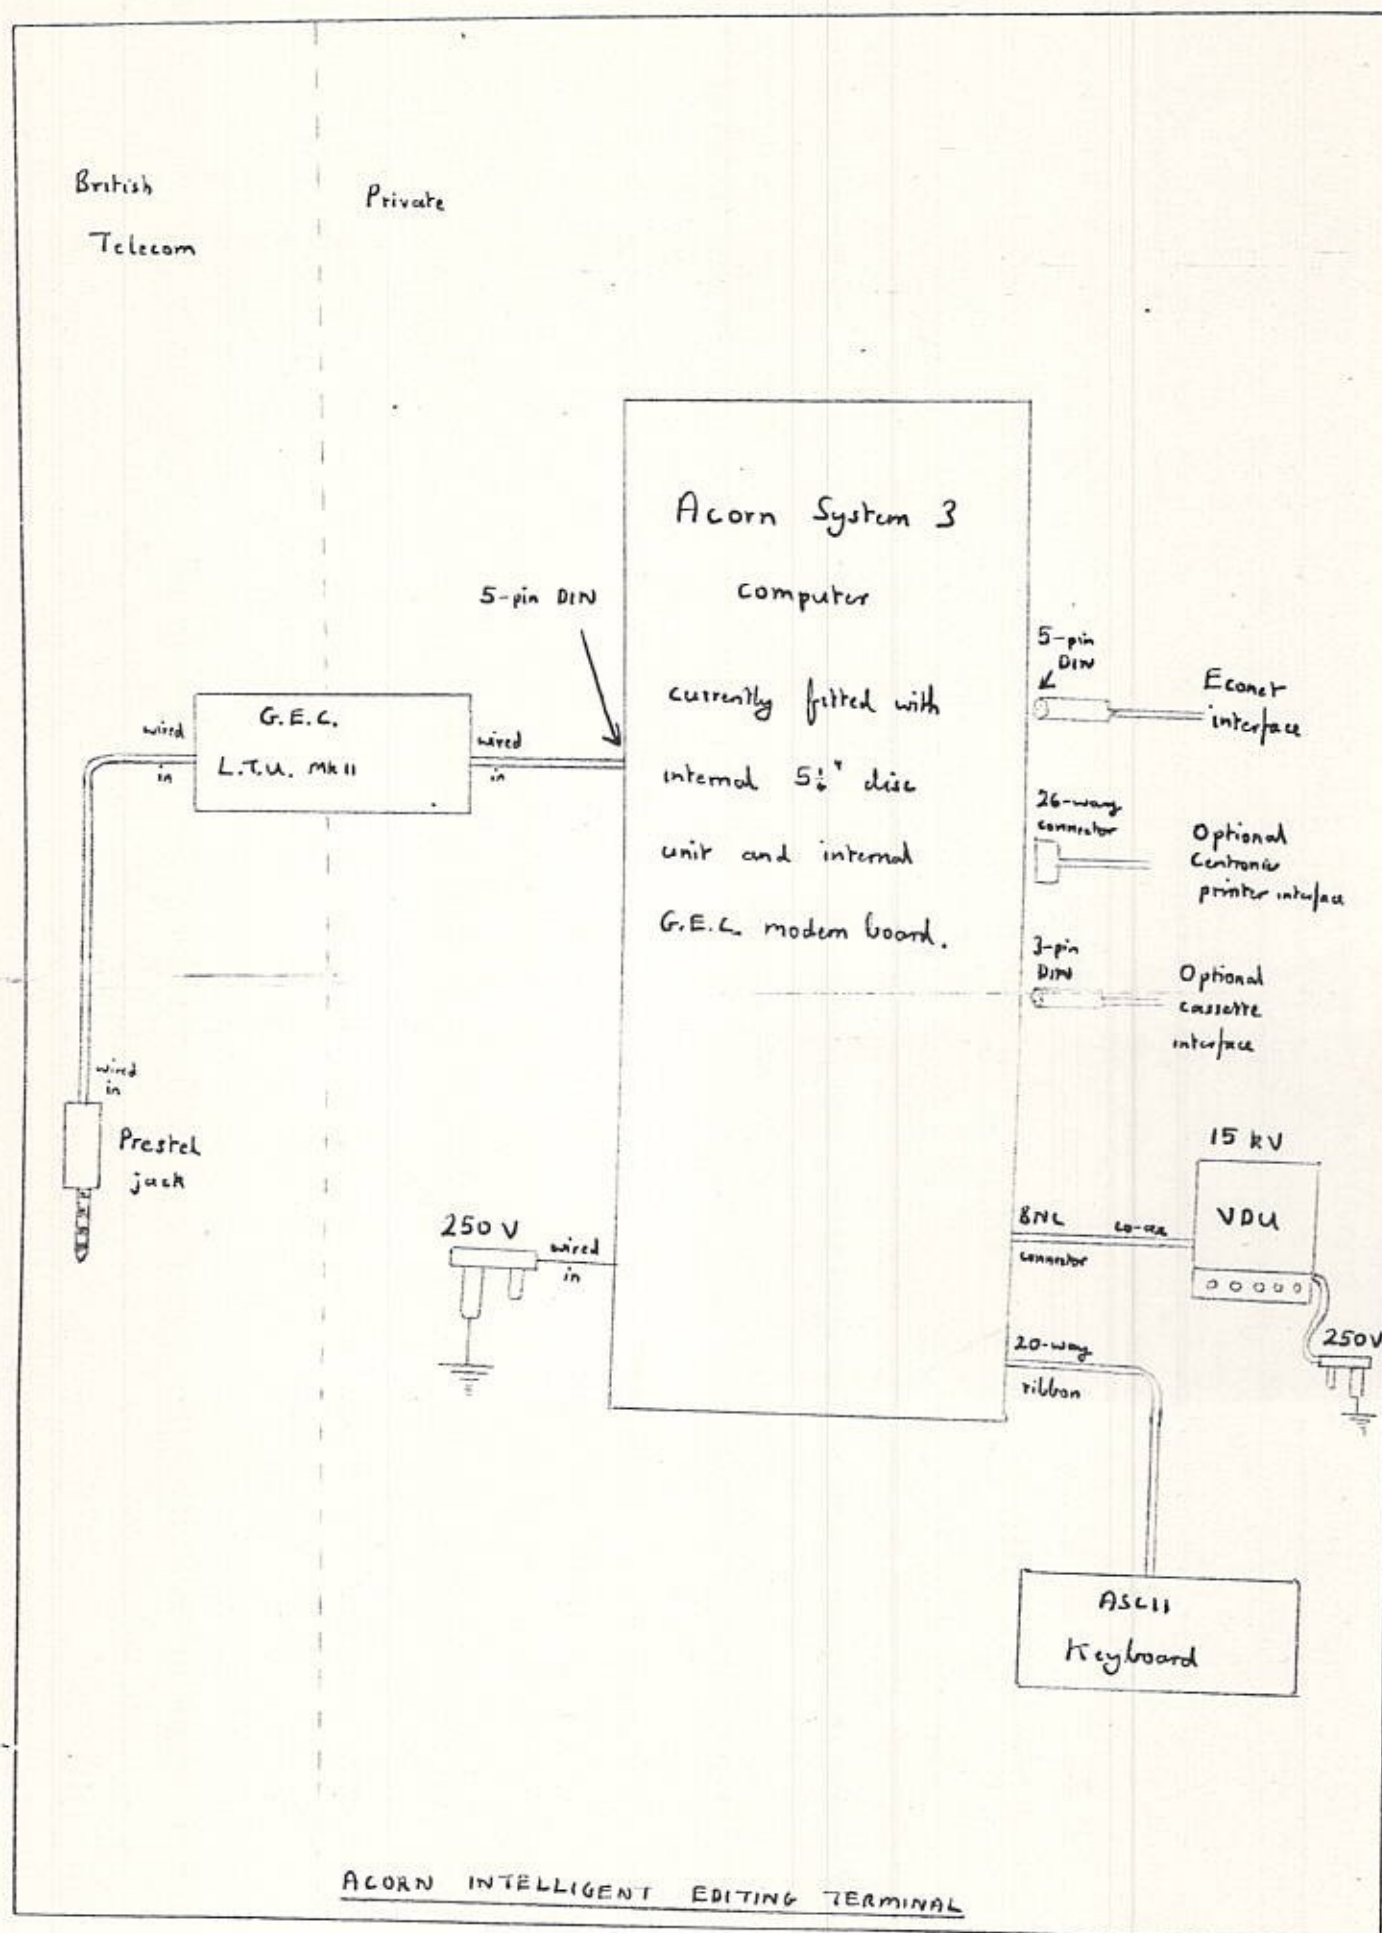 British
Telecom
Private
Acorn System 3
computer
currently fitted with
internal 5¼" disc
unit and internal
G.E.C. modem board.
5-pin DIN
G.E.C.
L.T.U. Mk II
wired
in
wired
in
wired
in
Prestel
jack
250 V
wired
in
5-pin
DIN
Econet
interface
26-way
connector
Optional
Centronic
printer interface
3-pin
DIN
Optional
cassette
interface
15 kV
VDU
BNC
connector
co-ax
250V
20-way
ribbon
ASCII
Keyboard
ACORN INTELLIGENT EDITING TERMINAL